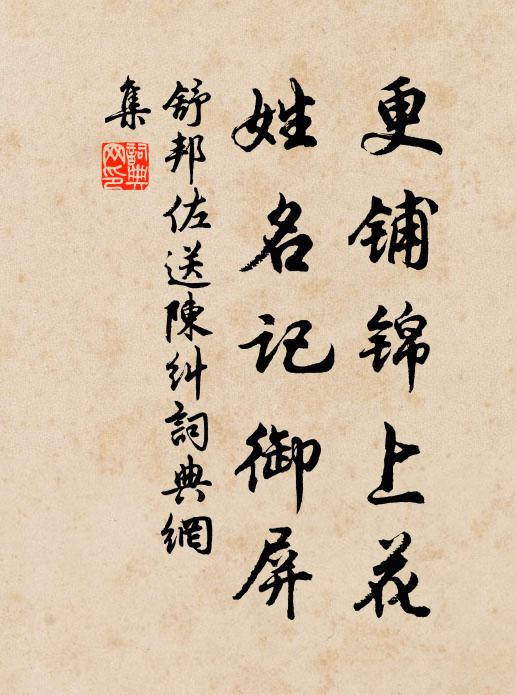 更铺锦上花
姓名记御屏
舒邦佐送陳糾詞典網
集
詞典
网印